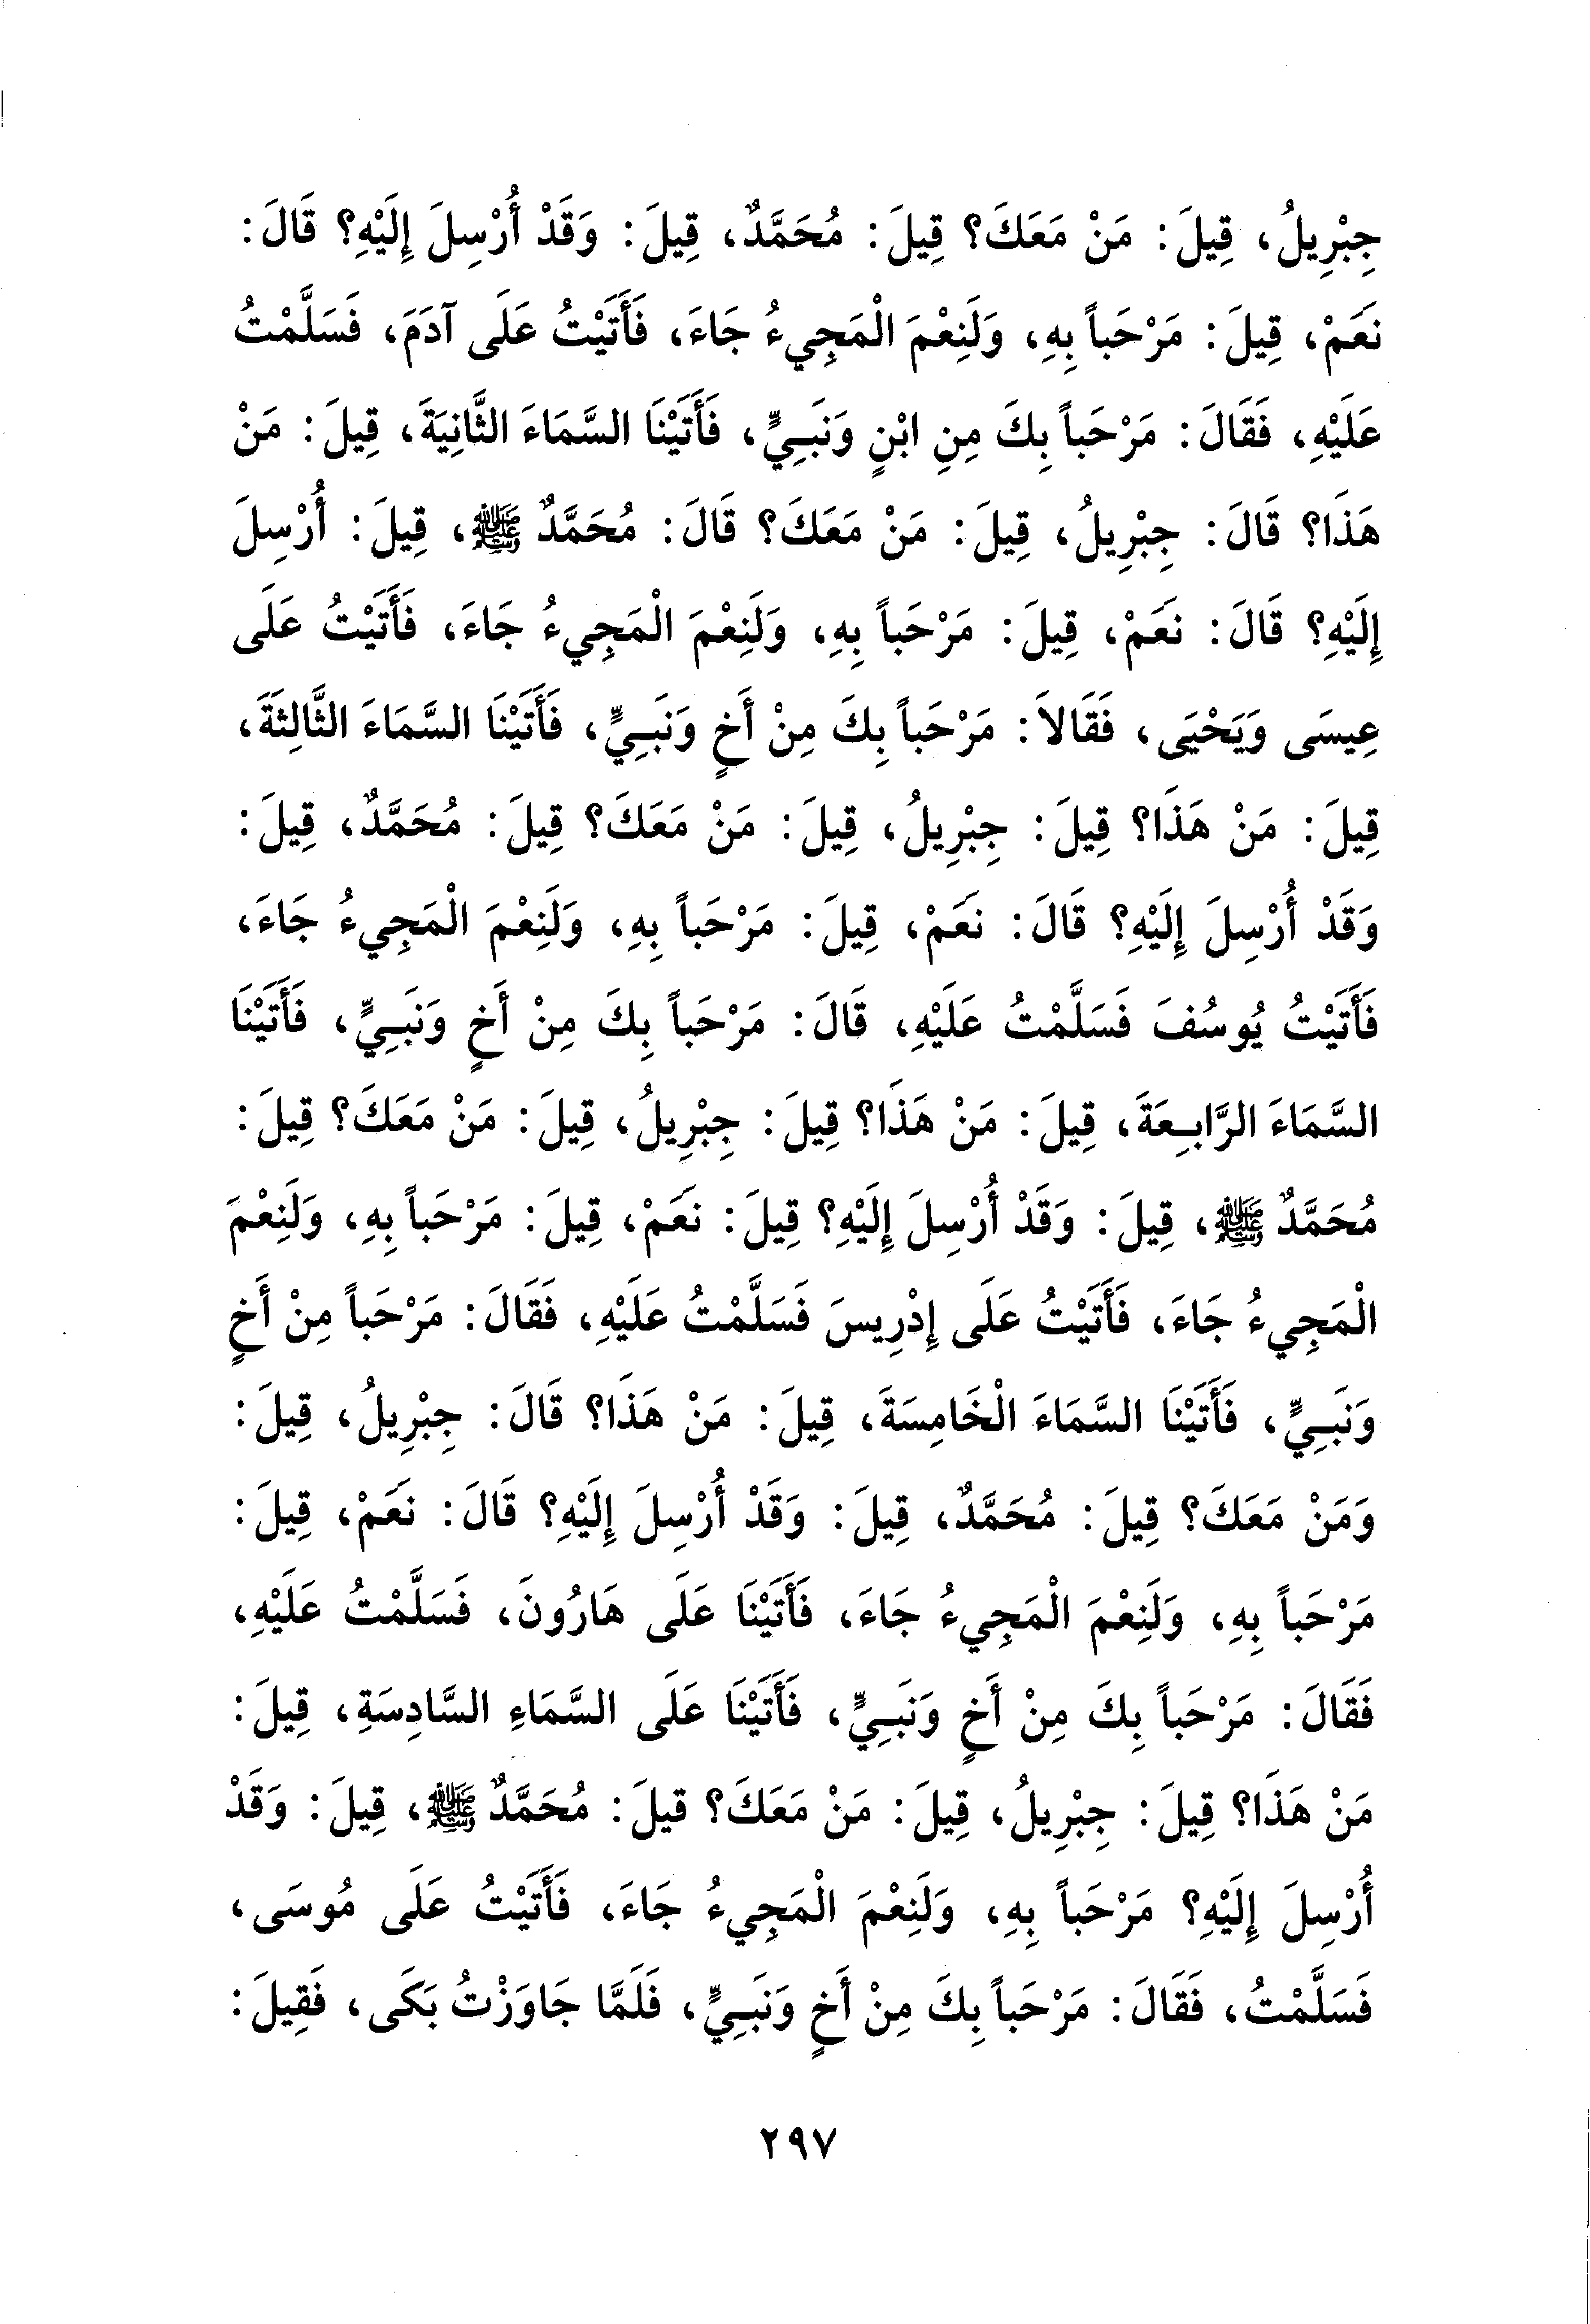 جِبْرِيلُ، قِيلَ: مَنْ مَعَكَ؟ قِيلَ: مُحَمَّدٌ، قِيلَ: وَقَدْ أُرْسِلَ إِلَيْهِ؟ قَالَ:
نَعَمْ، قِيلَ: مَرْحَباً بِهِ، وَلَنِعْمَ الْمَجِيءُ جَاءَ، فَأَتَيْتُ عَلَى آدَمَ، فَسَلَّمْتُ
عَلَيْهِ، فَقَالَ: مَرْحَباً بِكَ مِنِ ابْنٍ وَنَبِيٍّ، فَأَتَيْنَا السَّمَاءَ الثَّانِيَةَ، قِيلَ: مَنْ
هَذَا؟ قَالَ: جِبْرِيلُ، قِيلَ: مَنْ مَعَكَ؟ قَالَ: مُحَمَّدٌ ﷺ، قِيلَ: أُرْسِلَ
إِلَيْهِ؟ قَالَ: نَعَمْ، قِيلَ: مَرْحَباً بِهِ، وَلَنِعْمَ الْمَجِيءُ جَاءَ، فَأَتَيْتُ عَلَى
عِيسَى وَيَحْيَى، فَقَالاَ: مَرْحَباً بِكَ مِنْ أَخٍ وَنَبِيٍّ، فَأَتَيْنَا السَّمَاءَ الثَّالِثَةَ،
قِيلَ: مَنْ هَذَا؟ قِيلَ: جِبْرِيلُ، قِيلَ: مَنْ مَعَكَ؟ قِيلَ: مُحَمَّدٌ، قِيلَ:
وَقَدْ أُرْسِلَ إِلَيْهِ؟ قَالَ: نَعَمْ، قِيلَ: مَرْحَباً بِهِ، وَلَنِعْمَ الْمَجِيءُ جَاءَ،
فَأَتَيْتُ يُوسُفَ فَسَلَّمْتُ عَلَيْهِ، قَالَ: مَرْحَباً بِكَ مِنْ أَخٍ وَنَبِيٍّ، فَأَتَيْنَا
السَّمَاءَ الرَّابِعَةَ، قِيلَ: مَنْ هَذَا؟ قِيلَ: جِبْرِيلُ، قِيلَ: مَنْ مَعَكَ؟ قِيلَ:
مُحَمَّدٌ ﷺ، قِيلَ: وَقَدْ أُرْسِلَ إِلَيْهِ؟ قِيلَ: نَعَمْ، قِيلَ: مَرْحَباً بِهِ، وَلَنِعْمَ
الْمَجِيءُ جَاءَ، فَأَتَيْتُ عَلَى إِدْرِيسَ فَسَلَّمْتُ عَلَيْهِ، فَقَالَ: مَرْحَباً مِنْ أَخٍ
وَنَبِيٍّ، فَأَتَيْنَا السَّمَاءَ الْخَامِسَةَ، قِيلَ: مَنْ هَذَا؟ قَالَ: جِبْرِيلُ، قِيلَ:
وَمَنْ مَعَكَ؟ قِيلَ: مُحَمَّدٌ، قِيلَ: وَقَدْ أُرْسِلَ إِلَيْهِ؟ قَالَ: نَعَمْ، قِيلَ:
مَرْحَباً بِهِ، وَلَنِعْمَ الْمَجِيءُ جَاءَ، فَأَتَيْنَا عَلَى هَارُونَ، فَسَلَّمْتُ عَلَيْهِ،
فَقَالَ: مَرْحَباً بِكَ مِنْ أَخٍ وَنَبِيٍّ، فَأَتَيْنَا عَلَى السَّمَاءِ السَّادِسَةِ، قِيلَ:
مَنْ هَذَا؟ قِيلَ: جِبْرِيلُ، قِيلَ: مَنْ مَعَكَ؟ قيلَ: مُحَمَّدٌ ﷺ، قِيلَ: وَقَدْ
أُرْسِلَ إِلَيْهِ؟ مَرْحَباً بِهِ، وَلَنِعْمَ الْمَجِيءُ جَاءَ، فَأَتَيْتُ عَلَى مُوسَى،
فَسَلَّمْتُ، فَقَالَ: مَرْحَباً بِكَ مِنْ أَخٍ وَنَبِيٍّ، فَلَمَّا جَاوَزْتُ بَكَى، فَقِيلَ:
٢٩٧